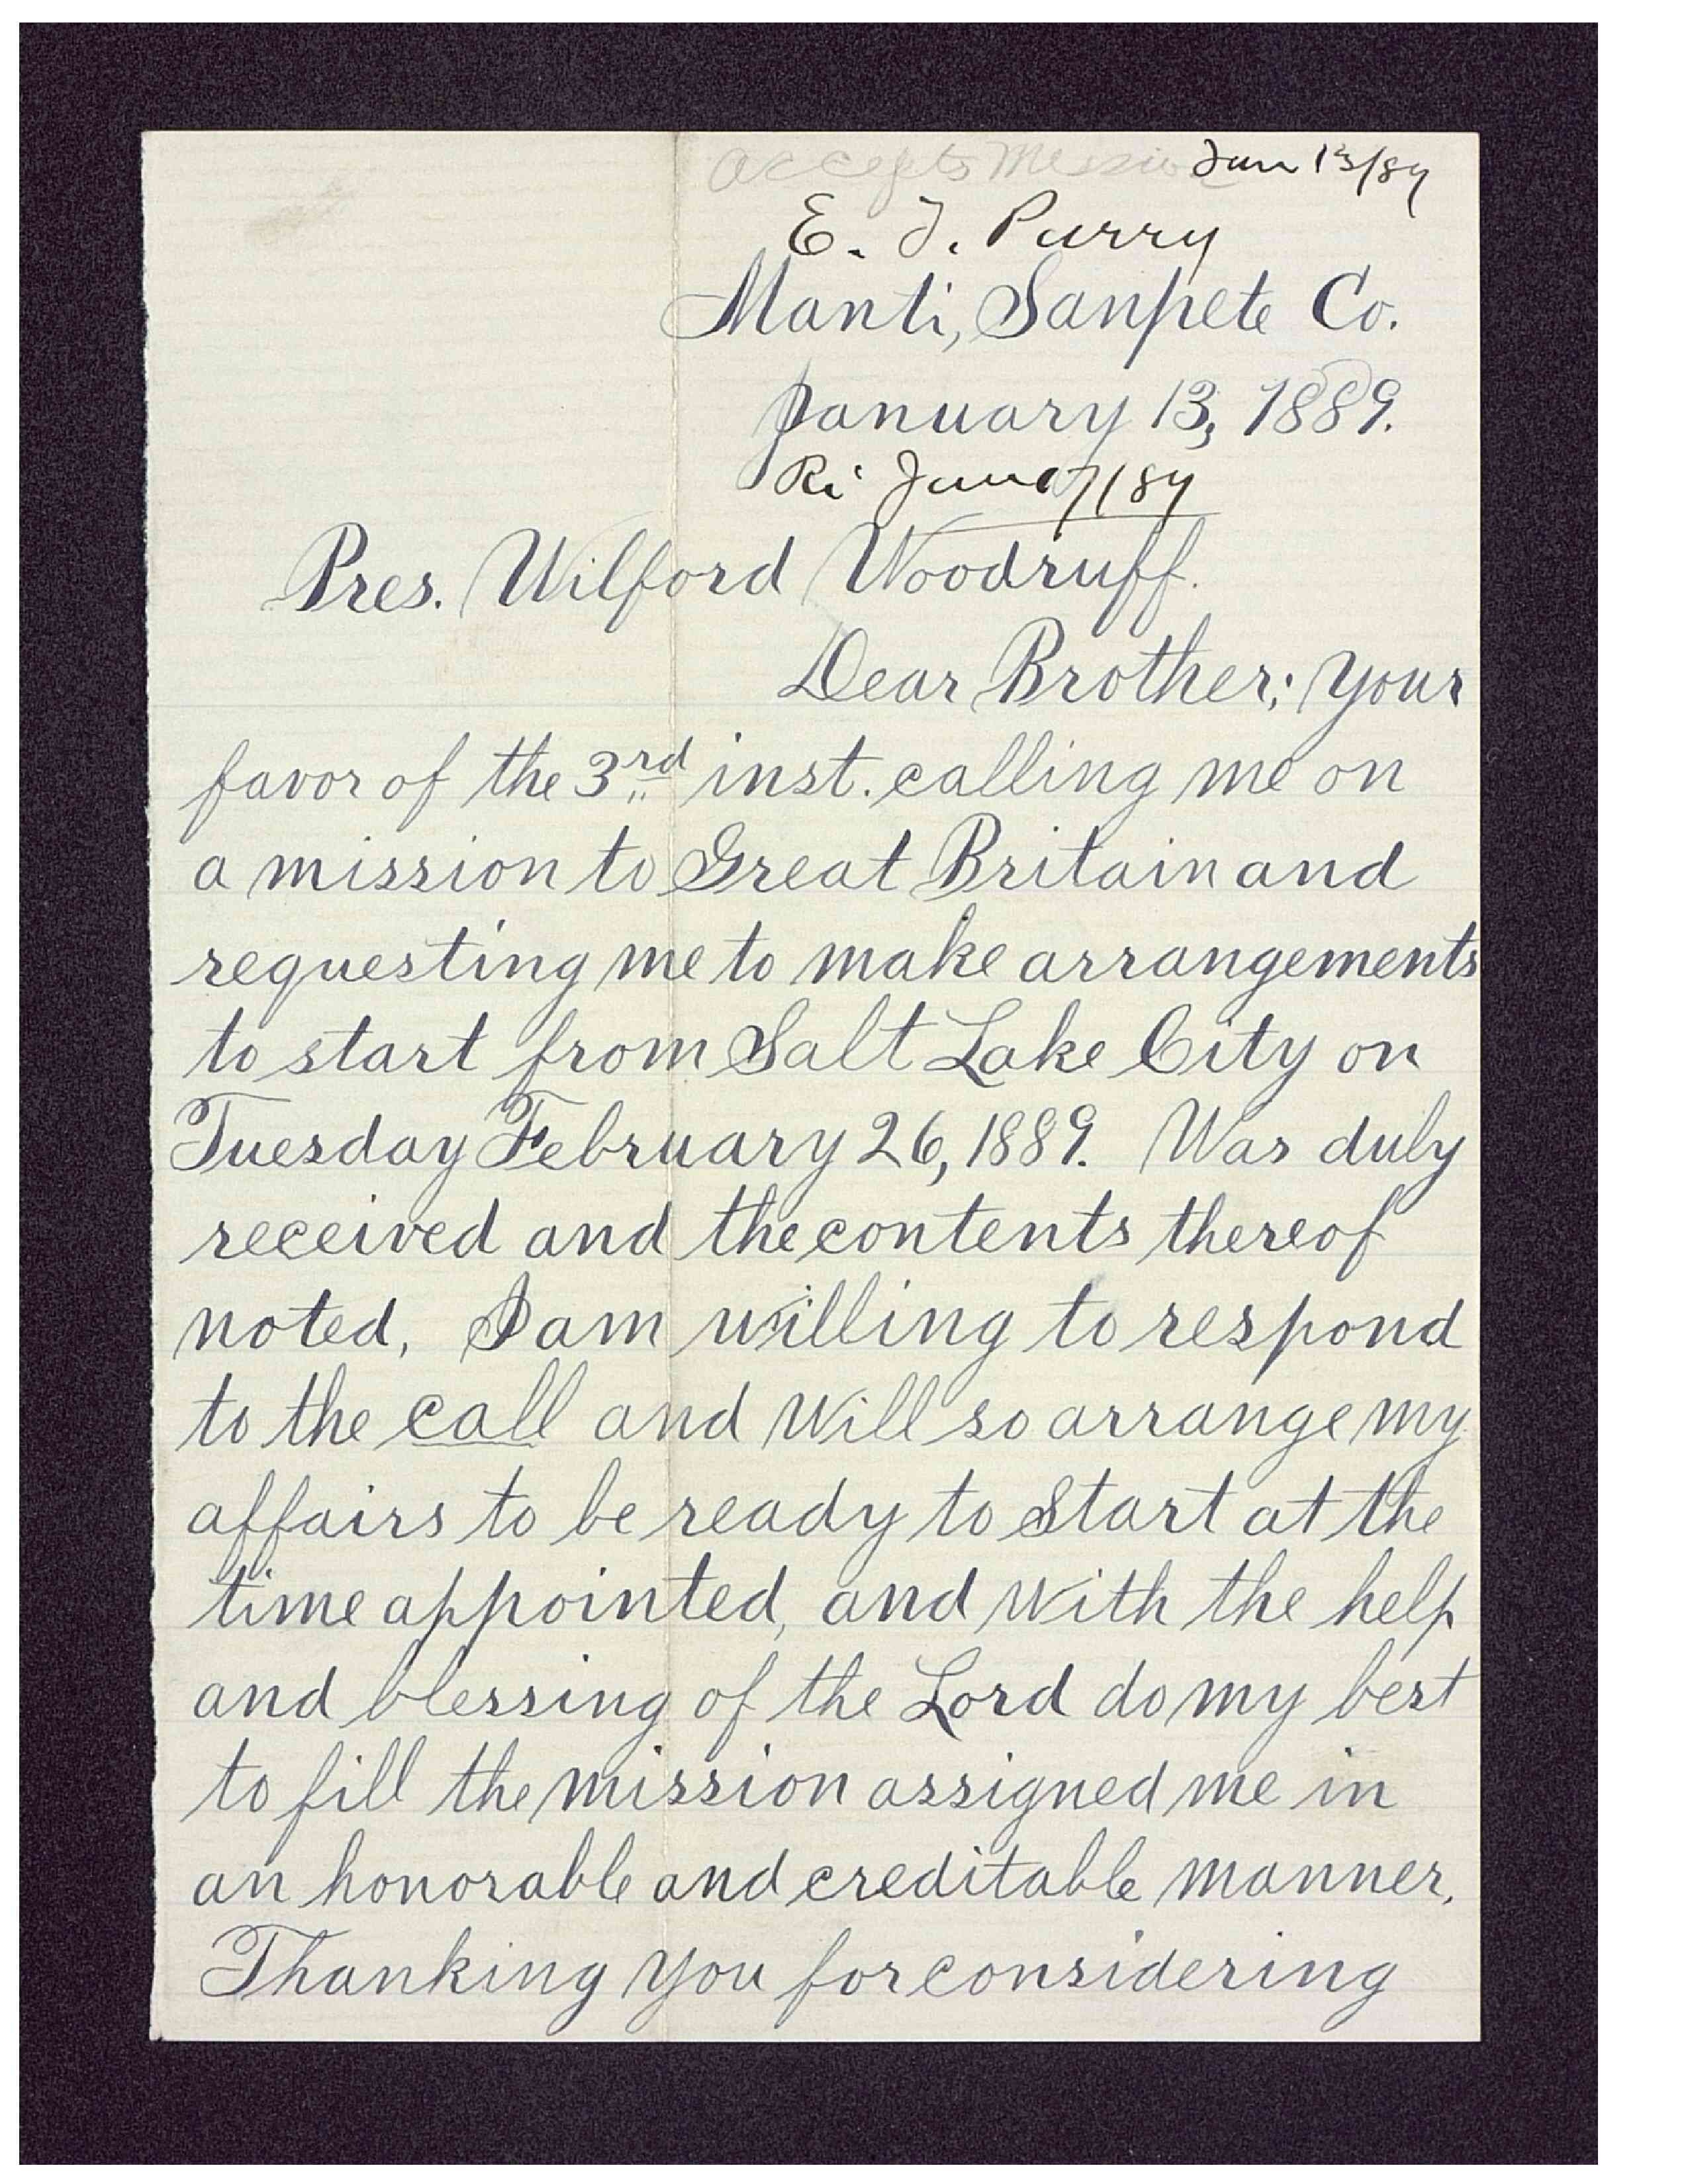 accepts Mission Jan 13/89
E. T. Parry
Manti, Sanpete Co.
January 13, 1889.
Jan 17/89
Pres. Wilford Woodruff.
Dear Brother; Your
favor of the 3rd inst. calling me on
a mission to Great Britain and
requesting me to make arrangements
to start from Salt Lake City on
Tuesday February 26, 1889. Was duly
received and the contents thereof
noted, I am willing to respond
to the call and will so arrange my
affairs to be ready to start at the
time appointed, and with the help
and blessing of the Lord do my best
to fill the mission assigned me in
an honorable and creditable manner.
Thanking you for considering